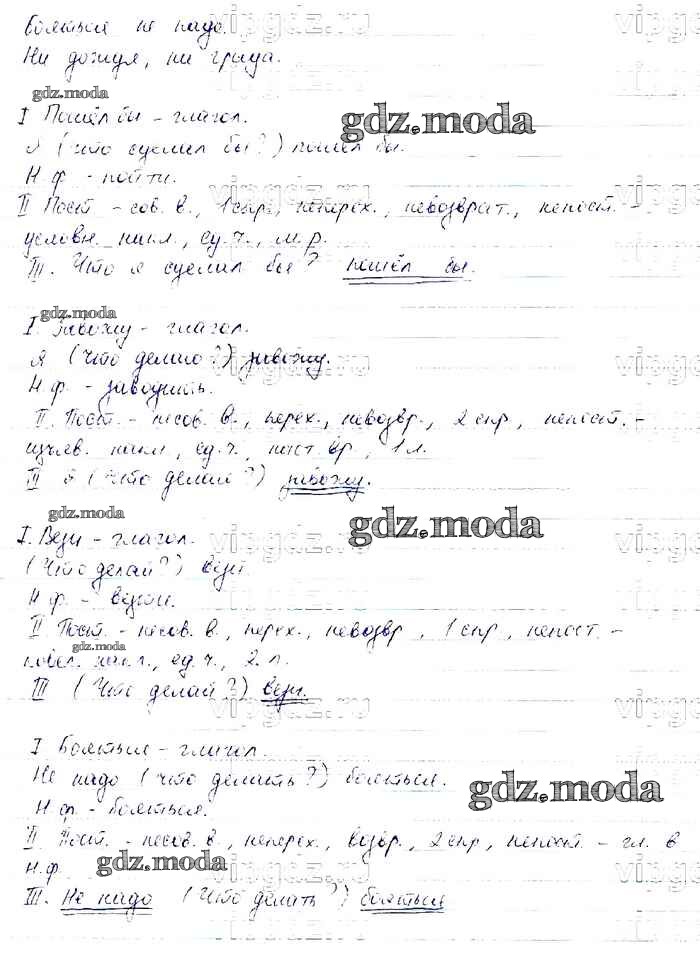 Бояться не надо.
Ни дождя, ни града.
gdz.moda
I Пошёл бы – глагол.
gdz.moda
Я (что сделал бы?) пошёл бы.
Н.ф. – пойти.
II Пост – сов. в., 1 спр., неперех., невозврат., непост. –
условн. накл., ед.ч., м.р.
III. Что я сделал бы? пошёл бы.
gdz.moda
I. Завожу – глагол.
Я (что делаю?) завожу.
Н.ф. – заводить.
II. Пост. – несов. в., перех., невозвр., 2 спр, непост. –
изъяв. накл., ед.ч., наст. вр., 1 л.
III Я (Что делаю?) завожу.
gdz.moda
gdz.moda
I. Вези – глагол.
(Что делай?) вези
Н.ф. – везти.
II Пост. – несов. в., перех., невозвр, 1 спр, непост. –
gdz.moda
повел. накл., ед.ч., 2 л.
III (Что делай?) вези.
I Бояться – глагол.
Не надо (что делать?) бояться.
gdz.moda
Н.ф. – бояться.
II Пост. – несов. в., неперех., возвр., 2 спр, непост – гл. в
Н.ф.
gdz.moda
III. Не надо (Что делать?) бояться
vipgdz.ru